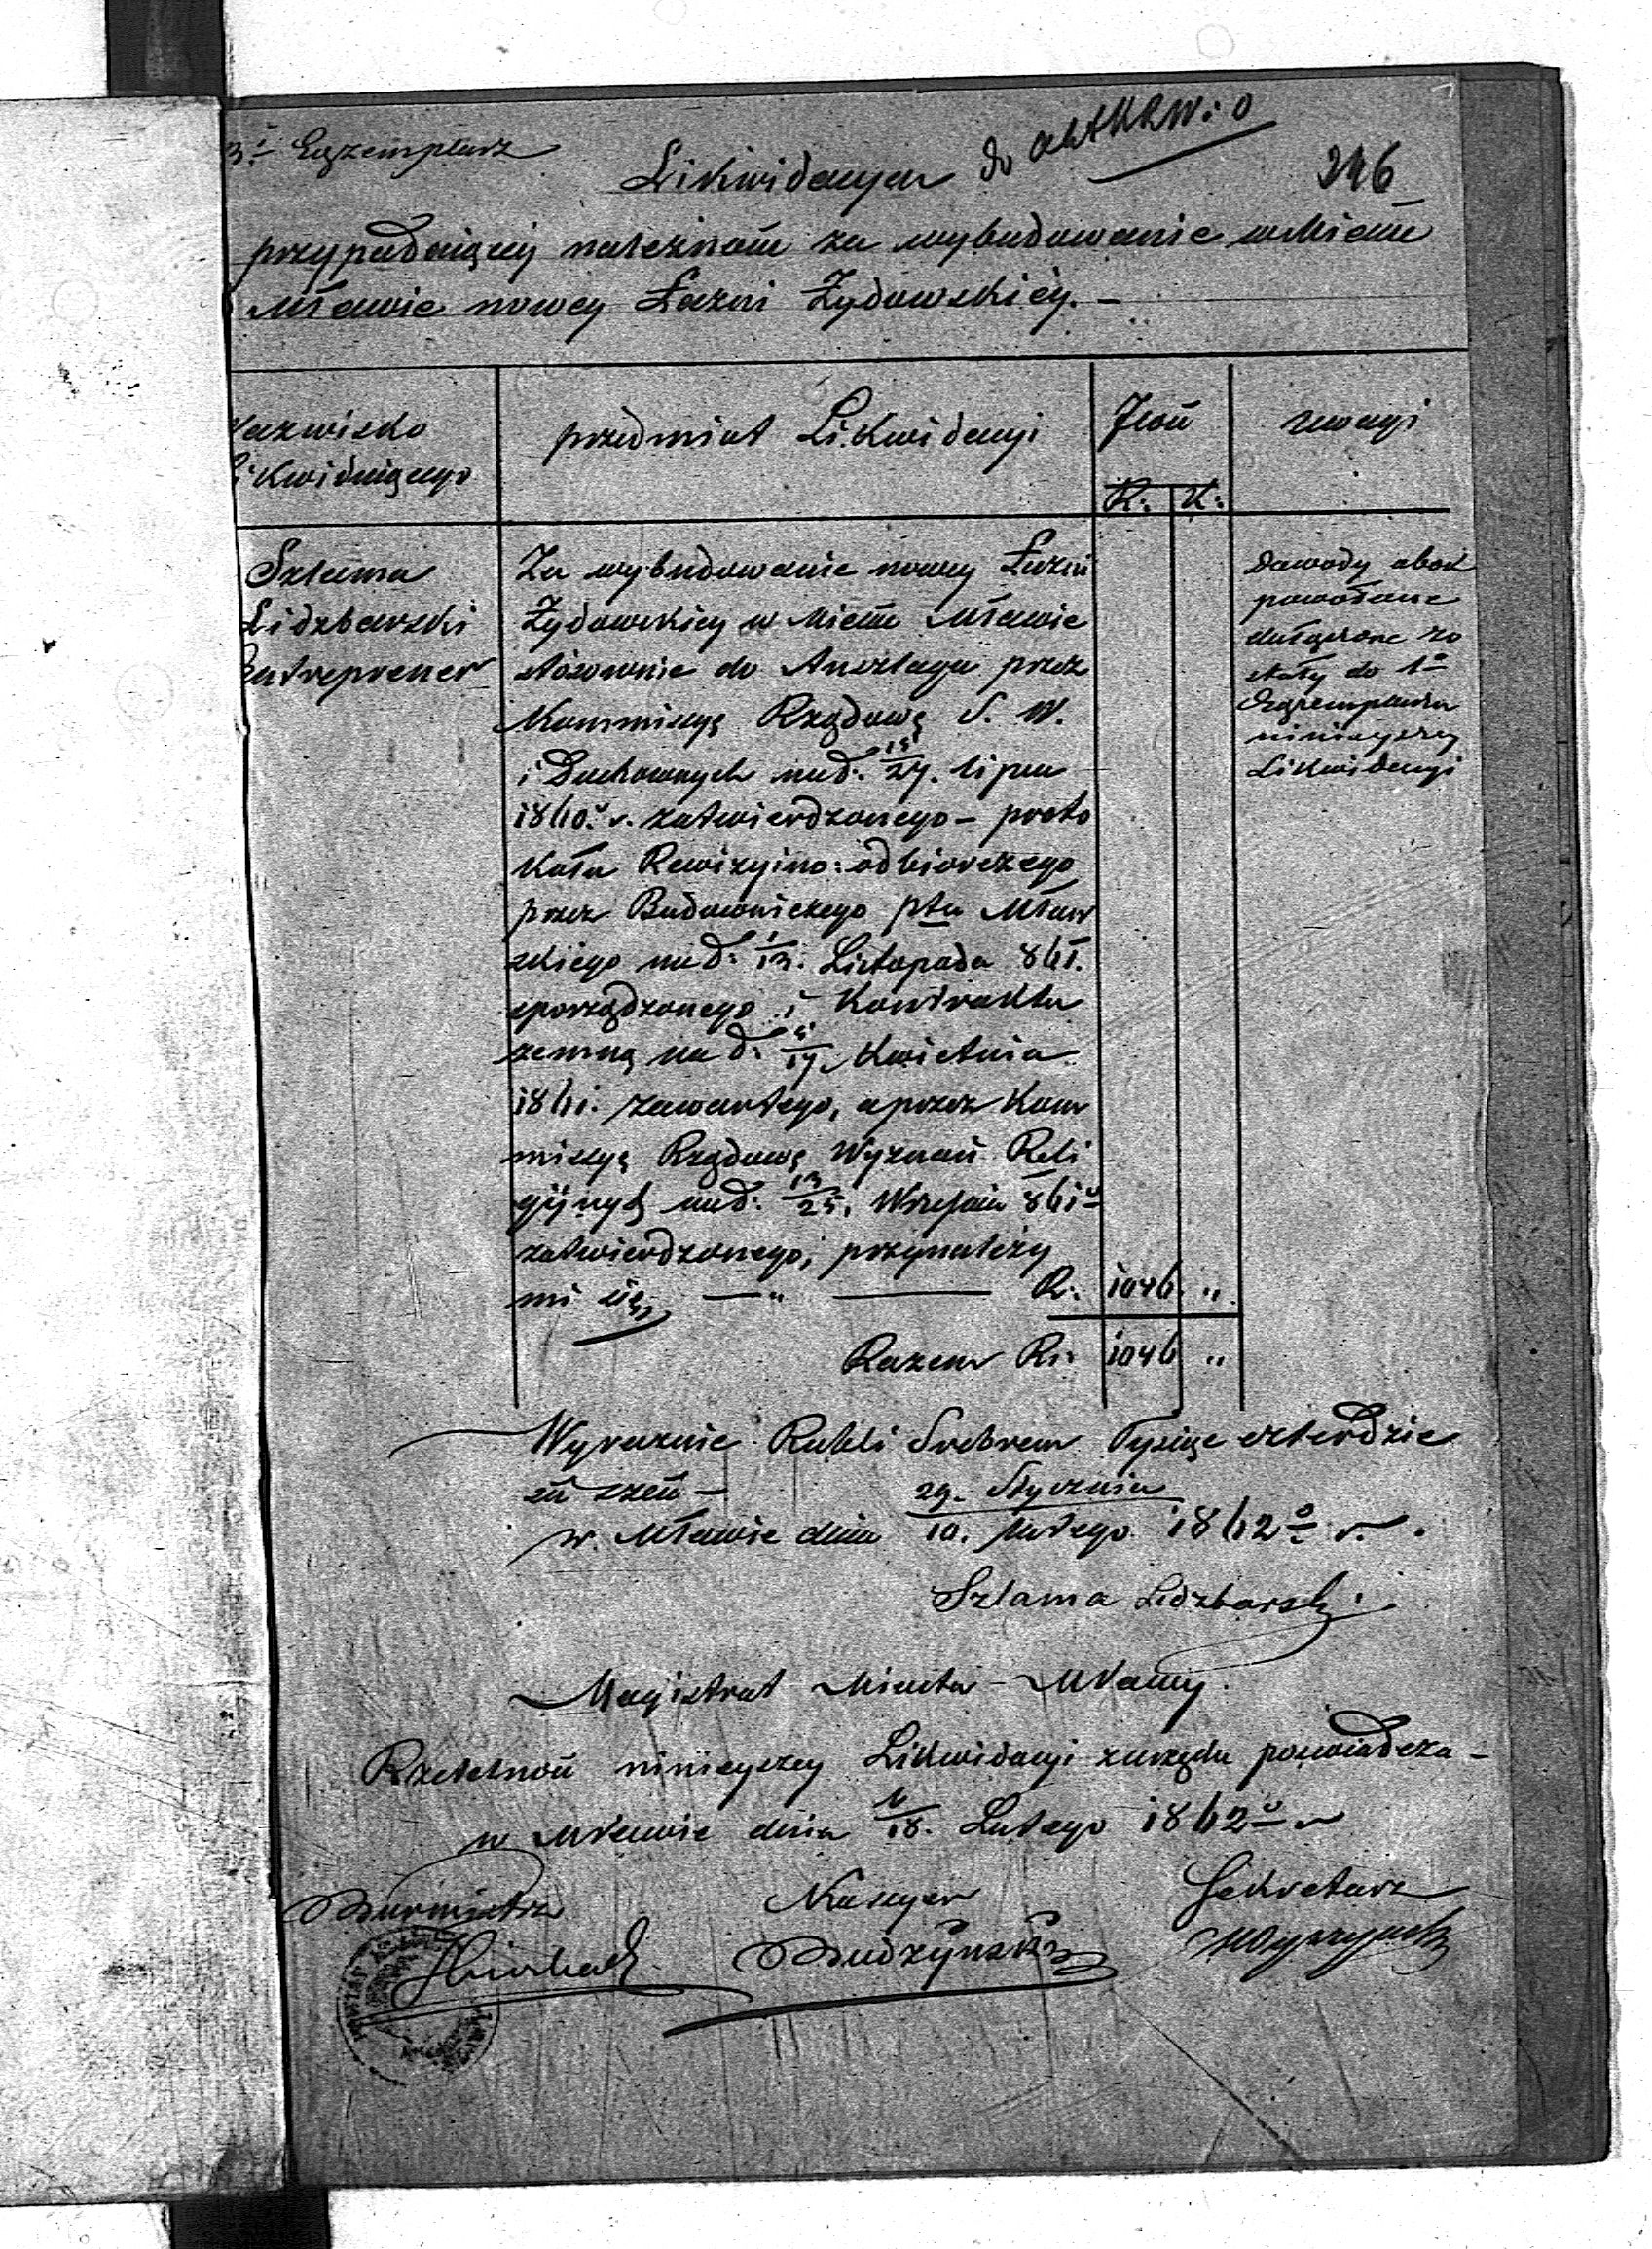 3i Egzemplarz
Likwidacya do akt KRW i O
246
przypadaiącey należności za wybudowanie w Mieście
Mławie nowey Łaźni Żydowskiey. –
Nazwisko
Likwiduiącego
przedmiot Likwidacyi
Ilość
uwagi
R: K:
Szlama
Lidzbarski
Entreprener
Za wybudowanie nowey Łaźni
Żydowskiey w Mieście Mławie
stósownie do Anszlagu przez
Kommissyę Rządową S. W.
i Duchownych nad: 15/27. lipca
1860. r. zatwierdzonego – proto
kołu Rewizyino: odbiorczego
przez Budowniczego ptu Mław
skiego nad: 1/13. Listopada 861.
sporządzonego i Kontraktu
zemną nad: 5/17 Kwietnia
1861. zawartego, a przez Kom
missyę Rządową Wyznań Reli
giinych nad: 13/25. Września 861
zatwierdzonego, przynależy
mi się, — " — R: 1046. "
Razem Rs: 1046 "
Dowody obok
powołane
dołączone zo
stały do 1o
Egzemplarza
ninieyszey
Likwidacyi
Wyraznie Rubli Srebrem Tysiąc czterdzie
ści sześć –
w Mławie dnia 29. Stycznia / 10. Lutego 1862o r.
Szlama Lidzbarski
Magistrat Miasta Mławy.
Rzetelność ninieyszey Likwidacyi zurzędu poswiadcza –
w Mławie dnia 6/18. Lutego 1862o r
Burmistrz
Kassyer
Sekretarz
Budzyński